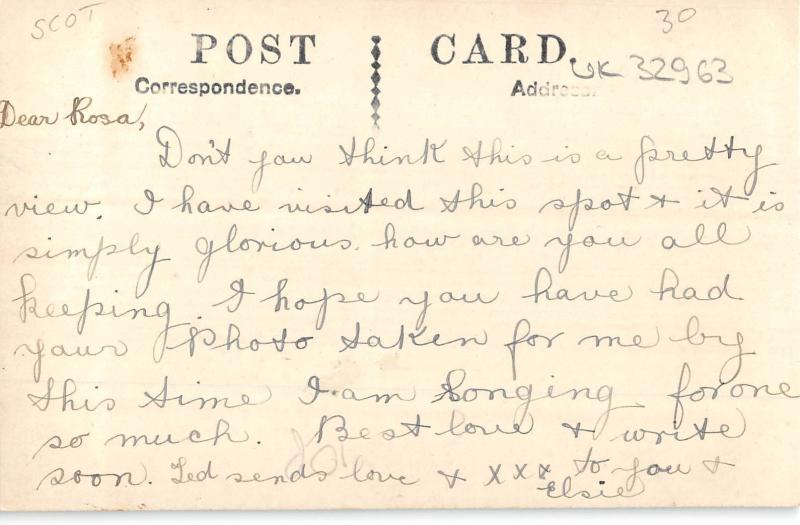 SCOT
30
POST CARD.
UK 32963
Correspondence. Address.
Dear Rosa,
Don't you think this is a pretty
view. I have visited this spot & it is
simply glorious. how are you all
keeping. I hope you have had
your Photo taken for me by
this time I am longing for one
so much. Best love & write
soon. Ted sends love & x x x to you &
Elsie